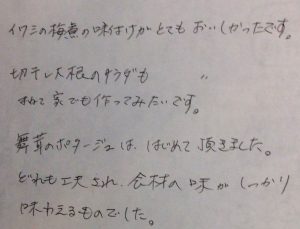 イワシの梅煮の味付けがとてもおいしかったです。
切干し大根のサラダも 〃
家でも作ってみたいです。
舞茸のポタージュは、はじめて頂きました。
どれも工夫され、食材の味がしっかり
味わえるものでした。